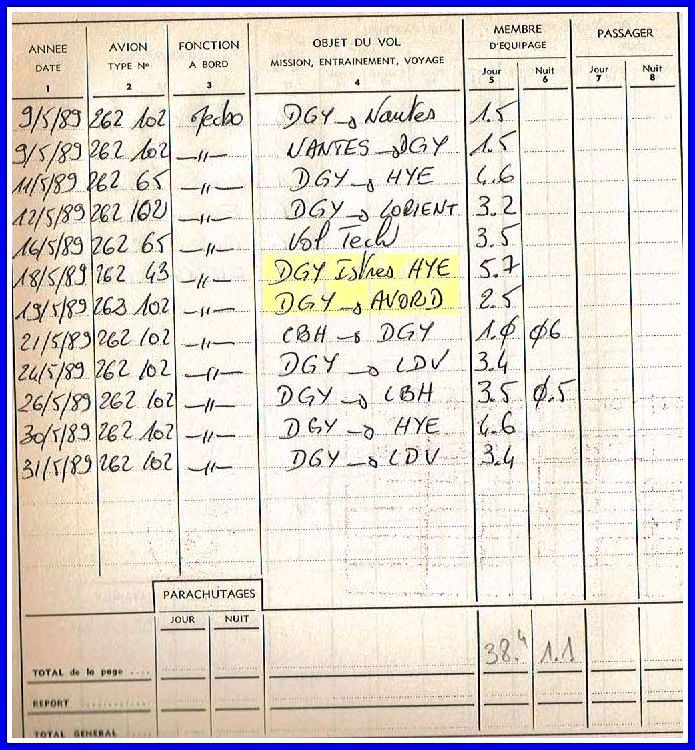 ANNEE AVION FONCTION OBJET DU VOL MEMBRE D'EQUIPAGE PASSAGER
DATE TYPE N° A BORD MISSION, ENTRAINEMENT, VOYAGE Jour Nuit Jour Nuit
1 2 3 4 5 6 7 8
9/5/89 262 102 DGY → Nantes 1.5
9/5/89 262 102 —//— NANTES → DGY 1.5
11/5/89 262 65 —//— DGY → HYE 4.6
12/5/89 262 102 —//— DGY → LORIENT 3.2
16/5/89 262 65 —//— Vol Tech 3.5
18/5/89 262 43 —//— DGY Istres HYE 5.7
19/5/89 263 102 —//— DGY → AVORD 2.5
21/5/89 262 102 —//— LBH → DGY 1.0 06
24/5/89 262 102 —//— DGY → LDV 3.4
26/5/89 262 102 —//— DGY → LBH 3.5 0.5
30/5/89 262 102 —//— DGY → HYE 4.6
31/5/89 262 102 —//— DGY → LDV 3.4
PARACHUTAGES
JOUR NUIT
TOTAL de la page .... 38.4 1.1
REPORT
TOTAL GENERAL